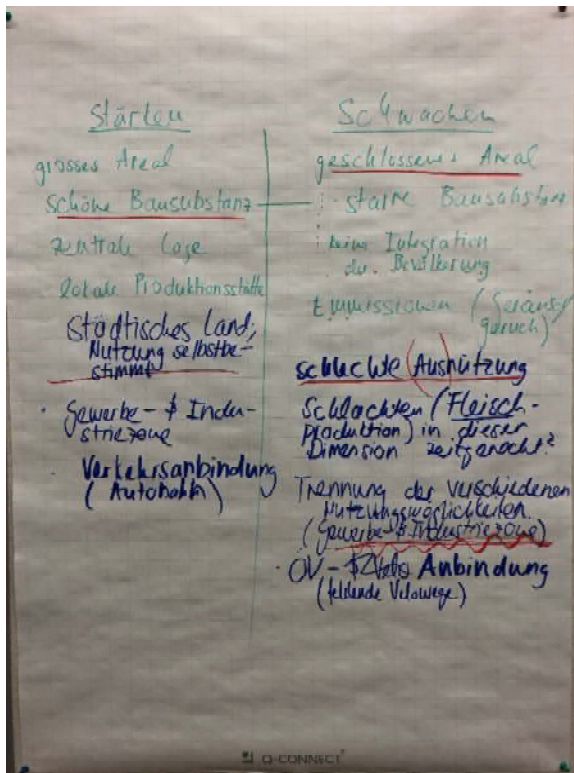 Stärken
grosses Areal
schöne Bausubstanz
zentrale Lage
lokale Produktionsstätte
Städtisches Land,
Nutzung selbstbe-
stimmt
· Gewerbe- & Indu-
striezone
· Verkehrsanbindung
(Autobahn)
Schwächen
geschlossenes Areal
starre Bausubstanz
keine Integration
der Bevölkerung
Emmissionen (Geräusch
geruch)
schlechte (Ausnützung
Schlachten (Fleisch-
produktion) in dieser
Dimension zeitgemäss?
Trennung der verschiedenen
Nutzungsmöglichkeiten
(Gewerbe- & Industriezone)
· ÖV- & Velo Anbindung
(fehlende Velowege)
Q-CONNECT